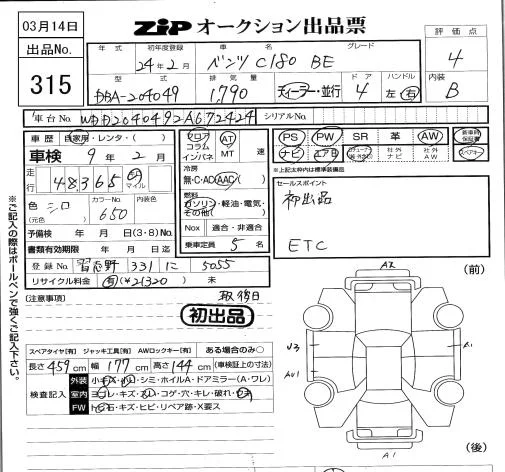 03月14日
出品No.
315
ZIP オークション出品票
評価点
4
内装
B
年式 初年度登録 車名 グレード
24年2月 ベンツ C180 BE
型式 排気量 ドア ハンドル
DBA-204049 1,790 ディーラー・並行 4 左 右
車台No. WDD2040492A672424 シリアルNo.
車歴 自家用・レンタ・( )
車検 9年2月
走行 48,365 km マイル
色 シロ (元色) カラーNo. 650 内装色
予備検 年 月 日(3・8)No.
書類有効期限 年 月 日迄
登録No. 習志野 331 に 5055
リサイクル料金 有(¥21320) 未
フロア コラム インパネ AT MT 速
冷房
無・C・AD・AAC( )
燃料
ガソリン・軽油・電気・その他( )
Nox 適合・非適合
乗車定員 5 名
PS PW SR 革 AW 新車時保証書
ナビ エアB 社外ナビ 社外AW スペアキー
*上記太枠内は標準装備品
セールスポイント
初出品
ETC
※ご記入の際はボールペンで強くご記入下さい。
(注意事項)
取後日
初出品
スペアタイヤ[有] ジャッキ工具[有] AWロックキー[有] ある場合のみ○
長さ 459 cm 幅 177 cm 高さ 144 cm (車検証上の寸法)
検査記入
外装 小キズ・小凹・シミ・ホイルA・ドアミラー(A・ワレ)
室内 ヨゴレ・キズ・スレ・コゲ・穴・キレ・破れ・
FW トビ石・キズ・ヒビ・リペア跡・X要ス
(前)
A2
U3
A1
AU1
A1
(後)